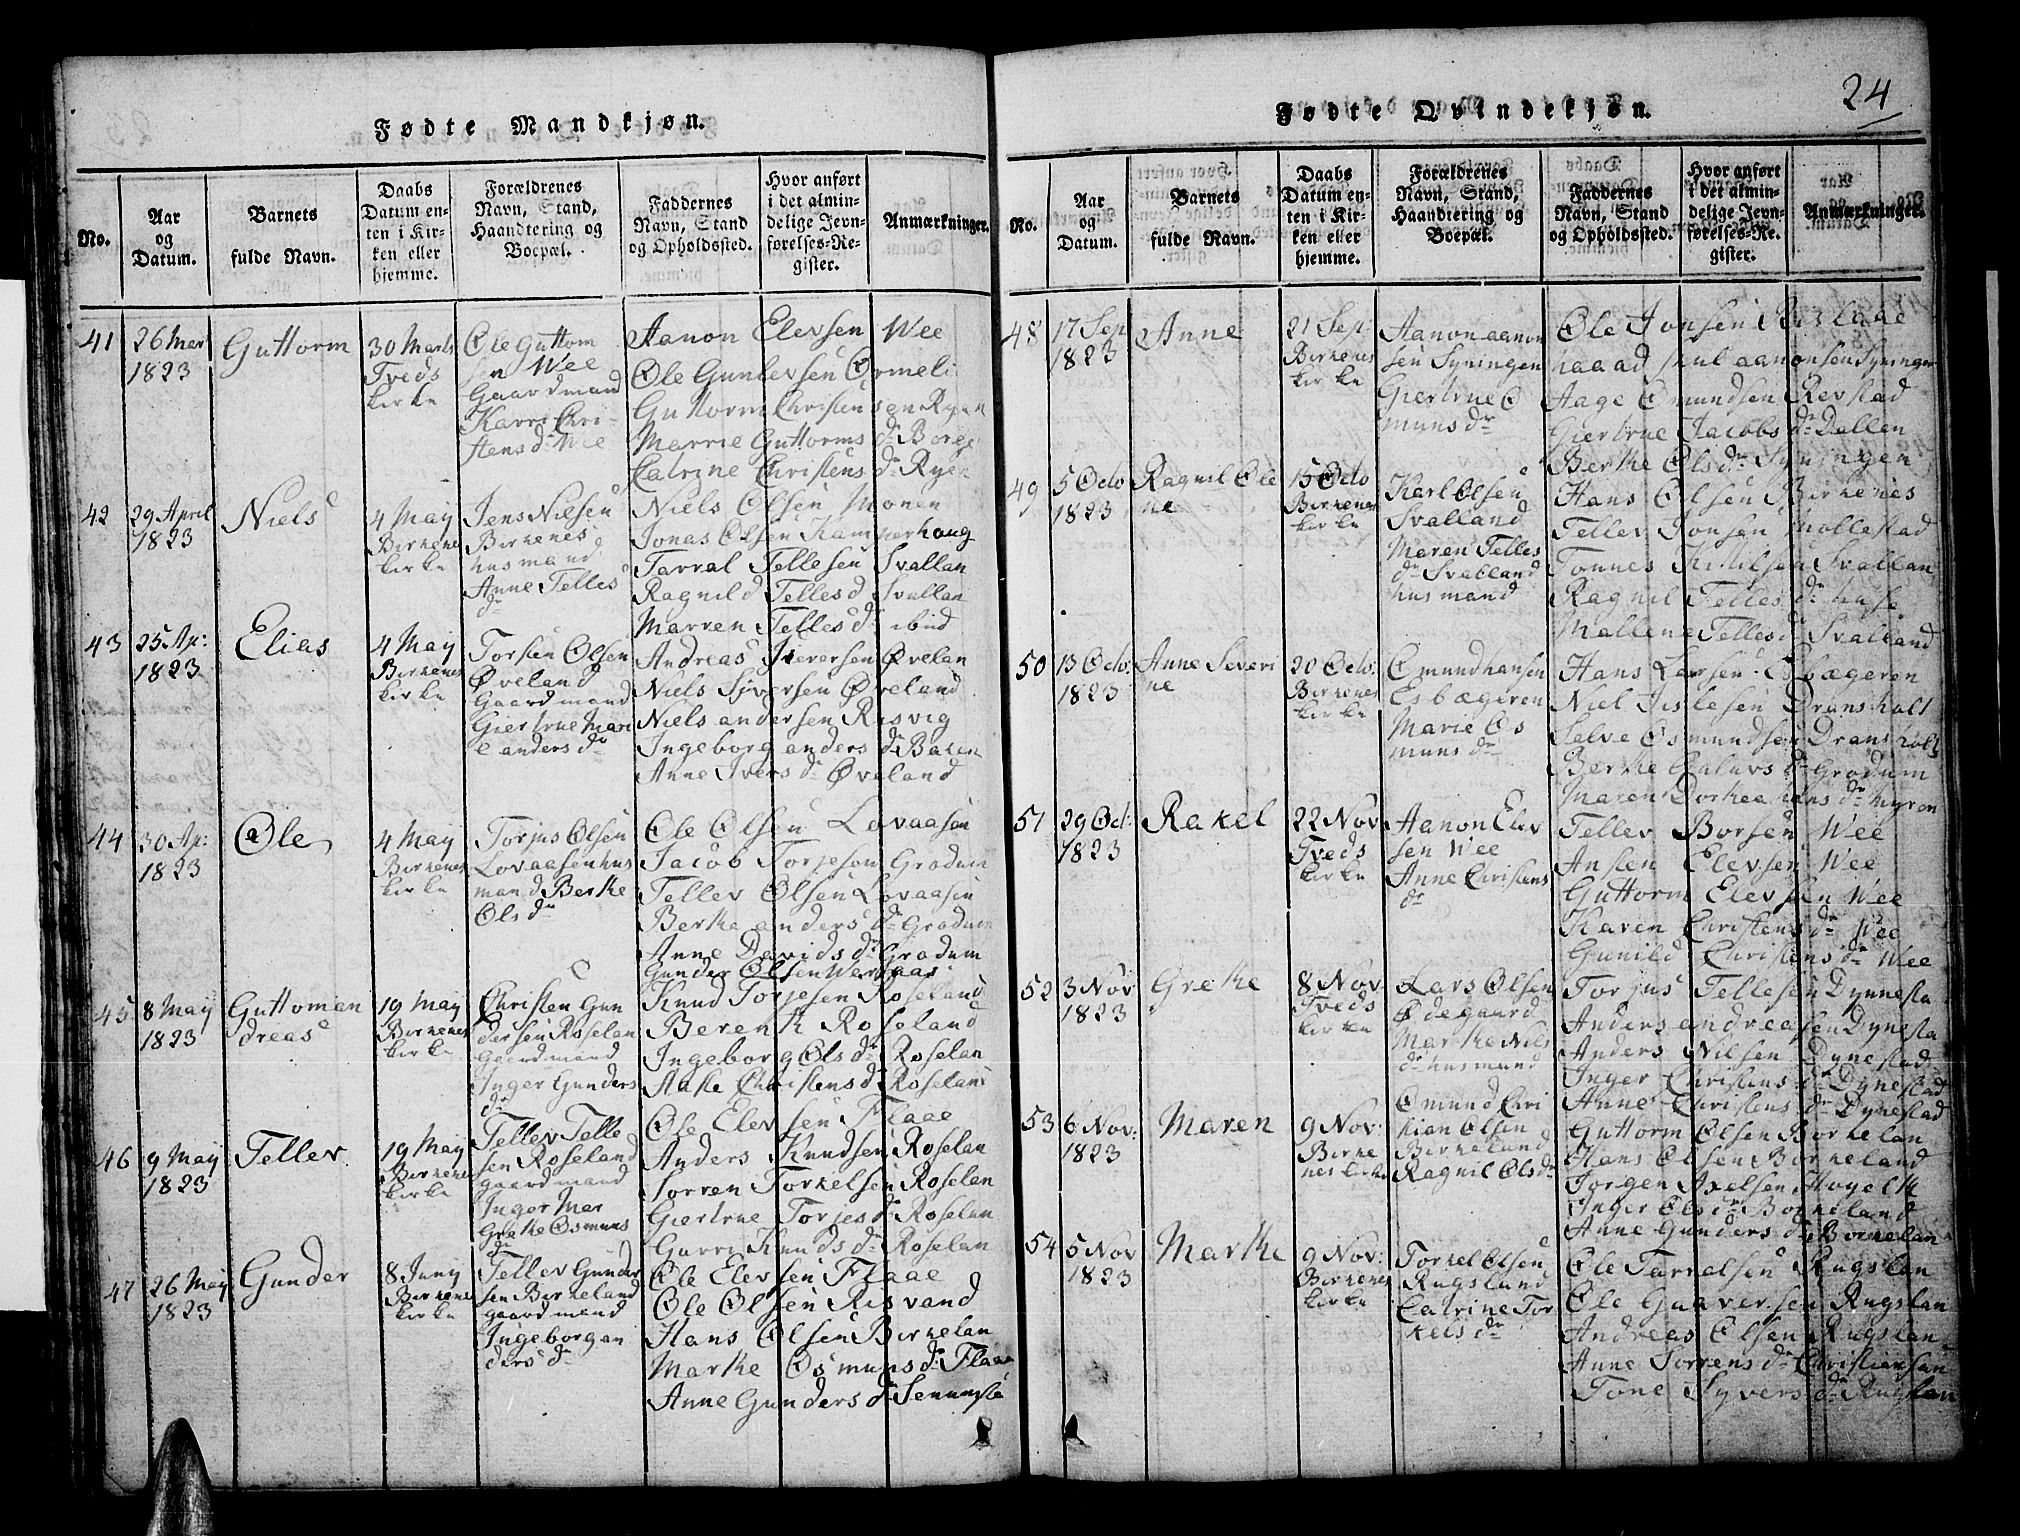 24
Fødte Mandkjøn.
No.
Aar
og
Datum.
Barnets
fulde Navn.
Daabs
Datum en-
ten i Kir-
ken eller
hjemme.
Forældrenes
Navn, Stand,
Haandtering og
Boepæl.
Faddernes
Navn, Stand
og Opholdssted.
Hvor anført
i det almin-
delige Jevn-
førelses-Re-
gister.
Anmærkninger.
41
26 Mar
1823
Guttorm
30 Marts
Tveds
kirke
Ole Guttom
sen Wee
Gaardmand
Karri Chri-
stens dr Wee
Aanon Elevsen Wee
Ole Gunlevsen Ormeli
Guttorm Christensen Ryen
Marrie Guttorms dr Borge
Catrine Christens dr Ryen
42
29 April
1823
Niels
4 May
Birkenes
kirke
Jens Nielsen
Birkenes
husmand
Anne Telles
dr
Niels Olsen Monen
Jonas Olsen Kamperhaug
Tarral Tellesen Svallan
Ragnild Telles d Svallan
Marren Telles dr ibid
43
25 Ap:
1823
Elias
4 May
Birkenes
kirke
Torsten Olsen
Øveland
Gaardmand
Giertrue Mari
e anders dr
Andreas Iversen Øvelan
Niels Sjversen Øveland
Niels andersen Risvig
Ingeborg anders dr Baken
Anne Ivers dr Øveland
44
30 Ap:
1823
Ole
4 May
Birkenes
kirke
Torjus Olsen
Lovaasen hus
mand Berthe
Ols dr
Ole Olsen Lovaasen
Jacob Torjesen Grodum
Tellev Olsen Lovaasen
Berthe anders dr Grodum
Anne Davids dr Grodum
Gunder Olsen
45
8 May
1823
Guttoman
dreas
19 May
Birkenes
kirke
Christen Gun
dersen Roselan
Gaardmand
Inger Gunders
dr
Knud Torjesen Roseland
Berenth Roseland
Ingeborg Ols dr Roselan
Aase Christens d Roselan
46
9 May
1823
Tellev
19 May
Birkenes
kirke
Tellev Telle
sen Roseland
gaardmand
Inger Mar
grethe Osmuns
dr
Ole Elevsen Flaae
Anders Knudsen Roselan
Sorren Torkelsen Roselan
Giertrue Torjes d Roselan
Gurri Knuds dr Roselan
47
26 May
1823
Gunder
8 Juny
Birkenes
kirke
Tellev Gunder
sen Birkeland
gaardmand
Ingeborg an
ders dr
Ole Elevsen Flaae
Ole Olsen Risvand
Hans Olsen Birkelan
Marthe Osmuns dr Flaae
Anne Gunders d
Fødte Qvindekjøn.
No.
Aar
og
Datum.
Barnets
fulde Navn.
Daabs
Datum en-
ten i Kir-
ken eller
hjemme.
Forældrenes
Navn, Stand,
Haandtering og
Boepæl.
Faddernes
Navn, Stand
og Opholdssted.
Hvor anført
i det almin-
delige Jevn-
førelses-Re-
gister.
Anmærkninger.
48
17 Sep
1823
Anne
21 Sep:
Birkenes
kirke
Aanon aanon
sen Syningen
Giertrue O
muns dr
Ole Jonsen
aanonsen Syningen
Aage Omundsen Revstad
Giertrue Jacobs dr Dallen
Berthe Ols dr Syningen
49
5 Octo
1823
Ragnil Ole
ne
15 Octo
Birkenes
kirke
Karl Olsen
Svalland
Maren Telles
dr Svalland
husmand
Hans Olsen Birkenes
Tellev Jonsen Mollestad
Tonnes Kitilsen Svallan
Ragnil Telles dr huse
Mallene Telles d Svalland
50
13 Octo.
1823
Anne Severi
ne
20 Octo.
Birkenes
kirke
Omund hansen
Esbægeren
Marie Os
muns dr
Hans Larsen Esbægeren
Niel Dransholt
Salve Osmundsen Dransholt
Berthe Galuvs dr Grodum
Maren Dorthea hans dr Myren
51
29 Oct:
1823
Rakel
22 Nov
Tveds
kirke
Aanon Elev
sen Wee
Anne Christens
dr
Tellev Borsen Wee
Ansten Elevsen Wee
Guttorm Elevsen Wee
Karen Christens dr Wee
Gunild Christens dr Wee
52
3 Nov
1823
Grethe
8 Nov
Tveds
kirke
Lars Olsen
Ødegaard
Marthe Nils
dr husmand
Torjus Tellesen Dynnesta
Anders andreasen Dynesta
Anders Nilsen Dynestad
Inger Christens dr Dynestad
Anne Christens dr Dynestad
53
6 Nov:
1823
Maren
9 Nov:
Birke
nes kirke
Omund Chri
stian Olsen
Birkeland
Ragnil Ols dr
Guttorm Olsen Birkelan
Hans Olsen Birkeland
Jorgen Axelsen
Inger Ols dr
Anne Gunders dr Birkelan
54
5 Nov
1823
Marthe
9 Nov:
Birkenes
kirke
Torkel Olsen
Rugsland
Catrine Tor
kels dr
Ole Tarralsen Rugslan
Ole Gunversen Rugslan
Andreas Olsen Rugslan
Anne Sorrens dr Christiansan
Tone Syvers dr Rugslan